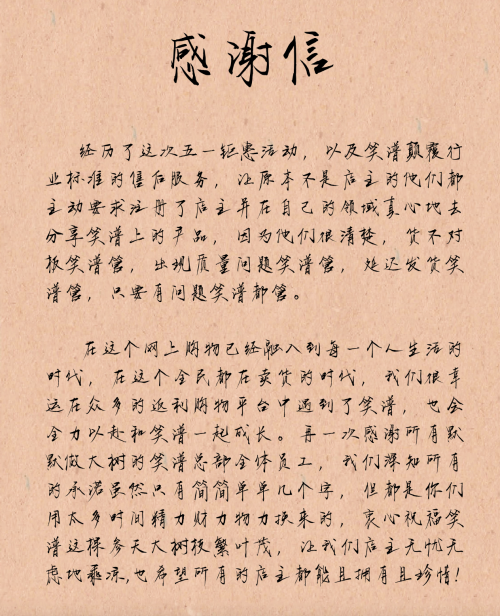 感谢信
经历了这次五一钜惠活动，以及笑谱颠覆行
业标准的售后服务，让原本不是店主的他们都
主动要求注册了店主并在自己的领域真心地去
分享笑谱上的产品，因为他们很清楚，货不对
板笑谱管，出现质量问题笑谱管，延迟发货笑
谱管，只要有问题笑谱都管。
在这个网上购物已经融入到每一个人生活的
时代，在这个全民都在卖货的时代，我们很幸
运在众多的返利购物平台中遇到了笑谱，也会
全力以赴和笑谱一起成长。再一次感谢所有默
默做大树的笑谱总部全体员工，我们深知所有
的承诺虽然只有简简单单几个字，但都是你们
用太多时间精力财力物力换来的，衷心祝福笑
谱这棵参天大树枝繁叶茂，让我们店主无忧无
虑地乘凉,也希望所有的店主都能且拥有且珍惜!